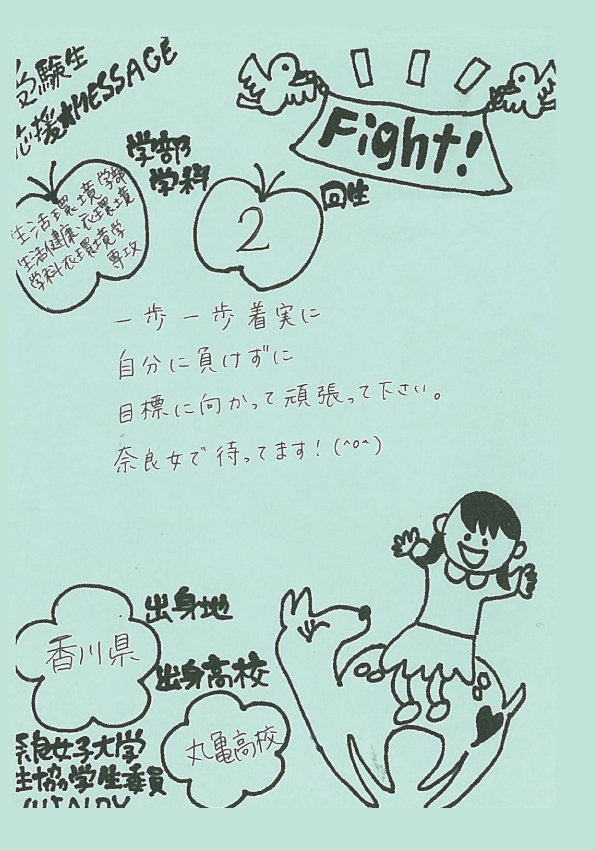 受験生
応援★MESSAGE
Fight!
学部
学科
生活環境学部
生活健康・衣環境
学科衣環境学
専攻
2
回生
一歩一歩着実に
自分に負けずに
目標に向かって頑張って下さい。
奈良女で待ってます!(^o^)
出身地
香川県
出身高校
丸亀高校
奈良女子大学
生協の学生委員